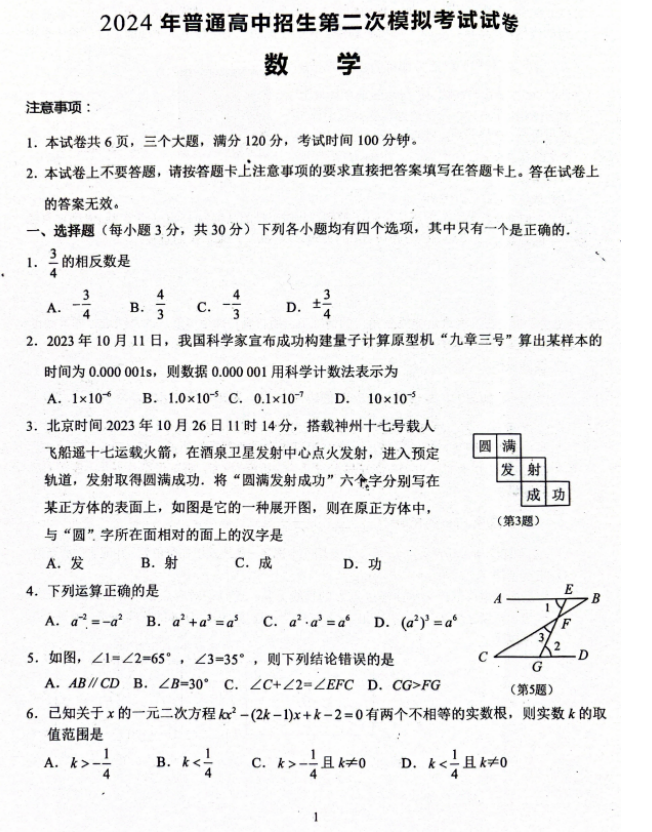 2024 年普通高中招生第二次模拟考试试卷
数 学
注意事项：
1．本试卷共 6 页，三个大题，满分 120 分，考试时间 100 分钟。
2．本试卷上不要答题，请按答题卡上注意事项的要求直接把答案填写在答题卡上。答在试卷上
的答案无效。
一、选择题（每小题 3 分，共 30 分）下列各小题均有四个选项，其中只有一个是正确的．
1．3/4 的相反数是
A．-3/4 B．4/3 C．-4/3 D．±3/4
2．2023 年 10 月 11 日，我国科学家宣布成功构建量子计算原型机“九章三号”算出某样本的
时间为 0.000 001s，则数据 0.000 001 用科学计数法表示为
A．1×10⁻⁶ B．1.0×10⁻⁵ C．0.1×10⁻⁷ D．10×10⁻⁵
3．北京时间 2023 年 10 月 26 日 11 时 14 分，搭载神州十七号载人
飞船遥十七运载火箭，在酒泉卫星发射中心点火发射，进入预定
轨道，发射取得圆满成功．将“圆满发射成功”六个字分别写在
某正方体的表面上，如图是它的一种展开图，则在原正方体中，
与“圆”字所在面相对的面上的汉字是
A．发 B．射 C．成 D．功
圆 满
发 射
成 功
（第3题）
4．下列运算正确的是
A．a⁻²=-a² B．a²+a³=a⁵ C．a²·a³=a⁶ D．(a²)³=a⁶
5．如图，∠1=∠2=65°，∠3=35°，则下列结论错误的是
A．AB∥CD B．∠B=30° C．∠C+∠2=∠EFC D．CG>FG
A E B
1
F
3 2
C G D
（第5题）
6．已知关于 x 的一元二次方程 kx²-(2k-1)x+k-2=0 有两个不相等的实数根，则实数 k 的取
值范围是
A．k>-1/4 B．k<1/4 C．k>-1/4 且 k≠0 D．k<1/4 且 k≠0
1